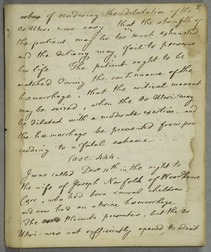 of rendering the dilatation of the
Os Uteri more easy that the strength of
the patient may be too much exhausted
and the delivery may fail to preserve
her life. The patient ought to be
watched during the continuance of the
hemorrhage, that the critical moment
may be seized, when the Os Uteri may
be dilated with a moderate exertion, and
the hemorrhage be prevented from pro
ceeding to a fatal extreme.
Case 444.
I was called Dec 11th in the night to
the wife of Joseph Norfolk of Woodhouse
Carr, who had born several children
and now had an uterine hemorrhage
The Placenta presented, but the Os
Uteri was not sufficiently opened to admit